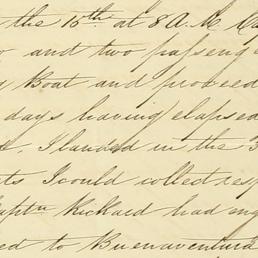 the 15th at 8 A.M.
and two passeng
Boat and proceed
days having elapsed
I landed in the
I could collect resp
Captn Rickard had eng
ed to Buenaventura